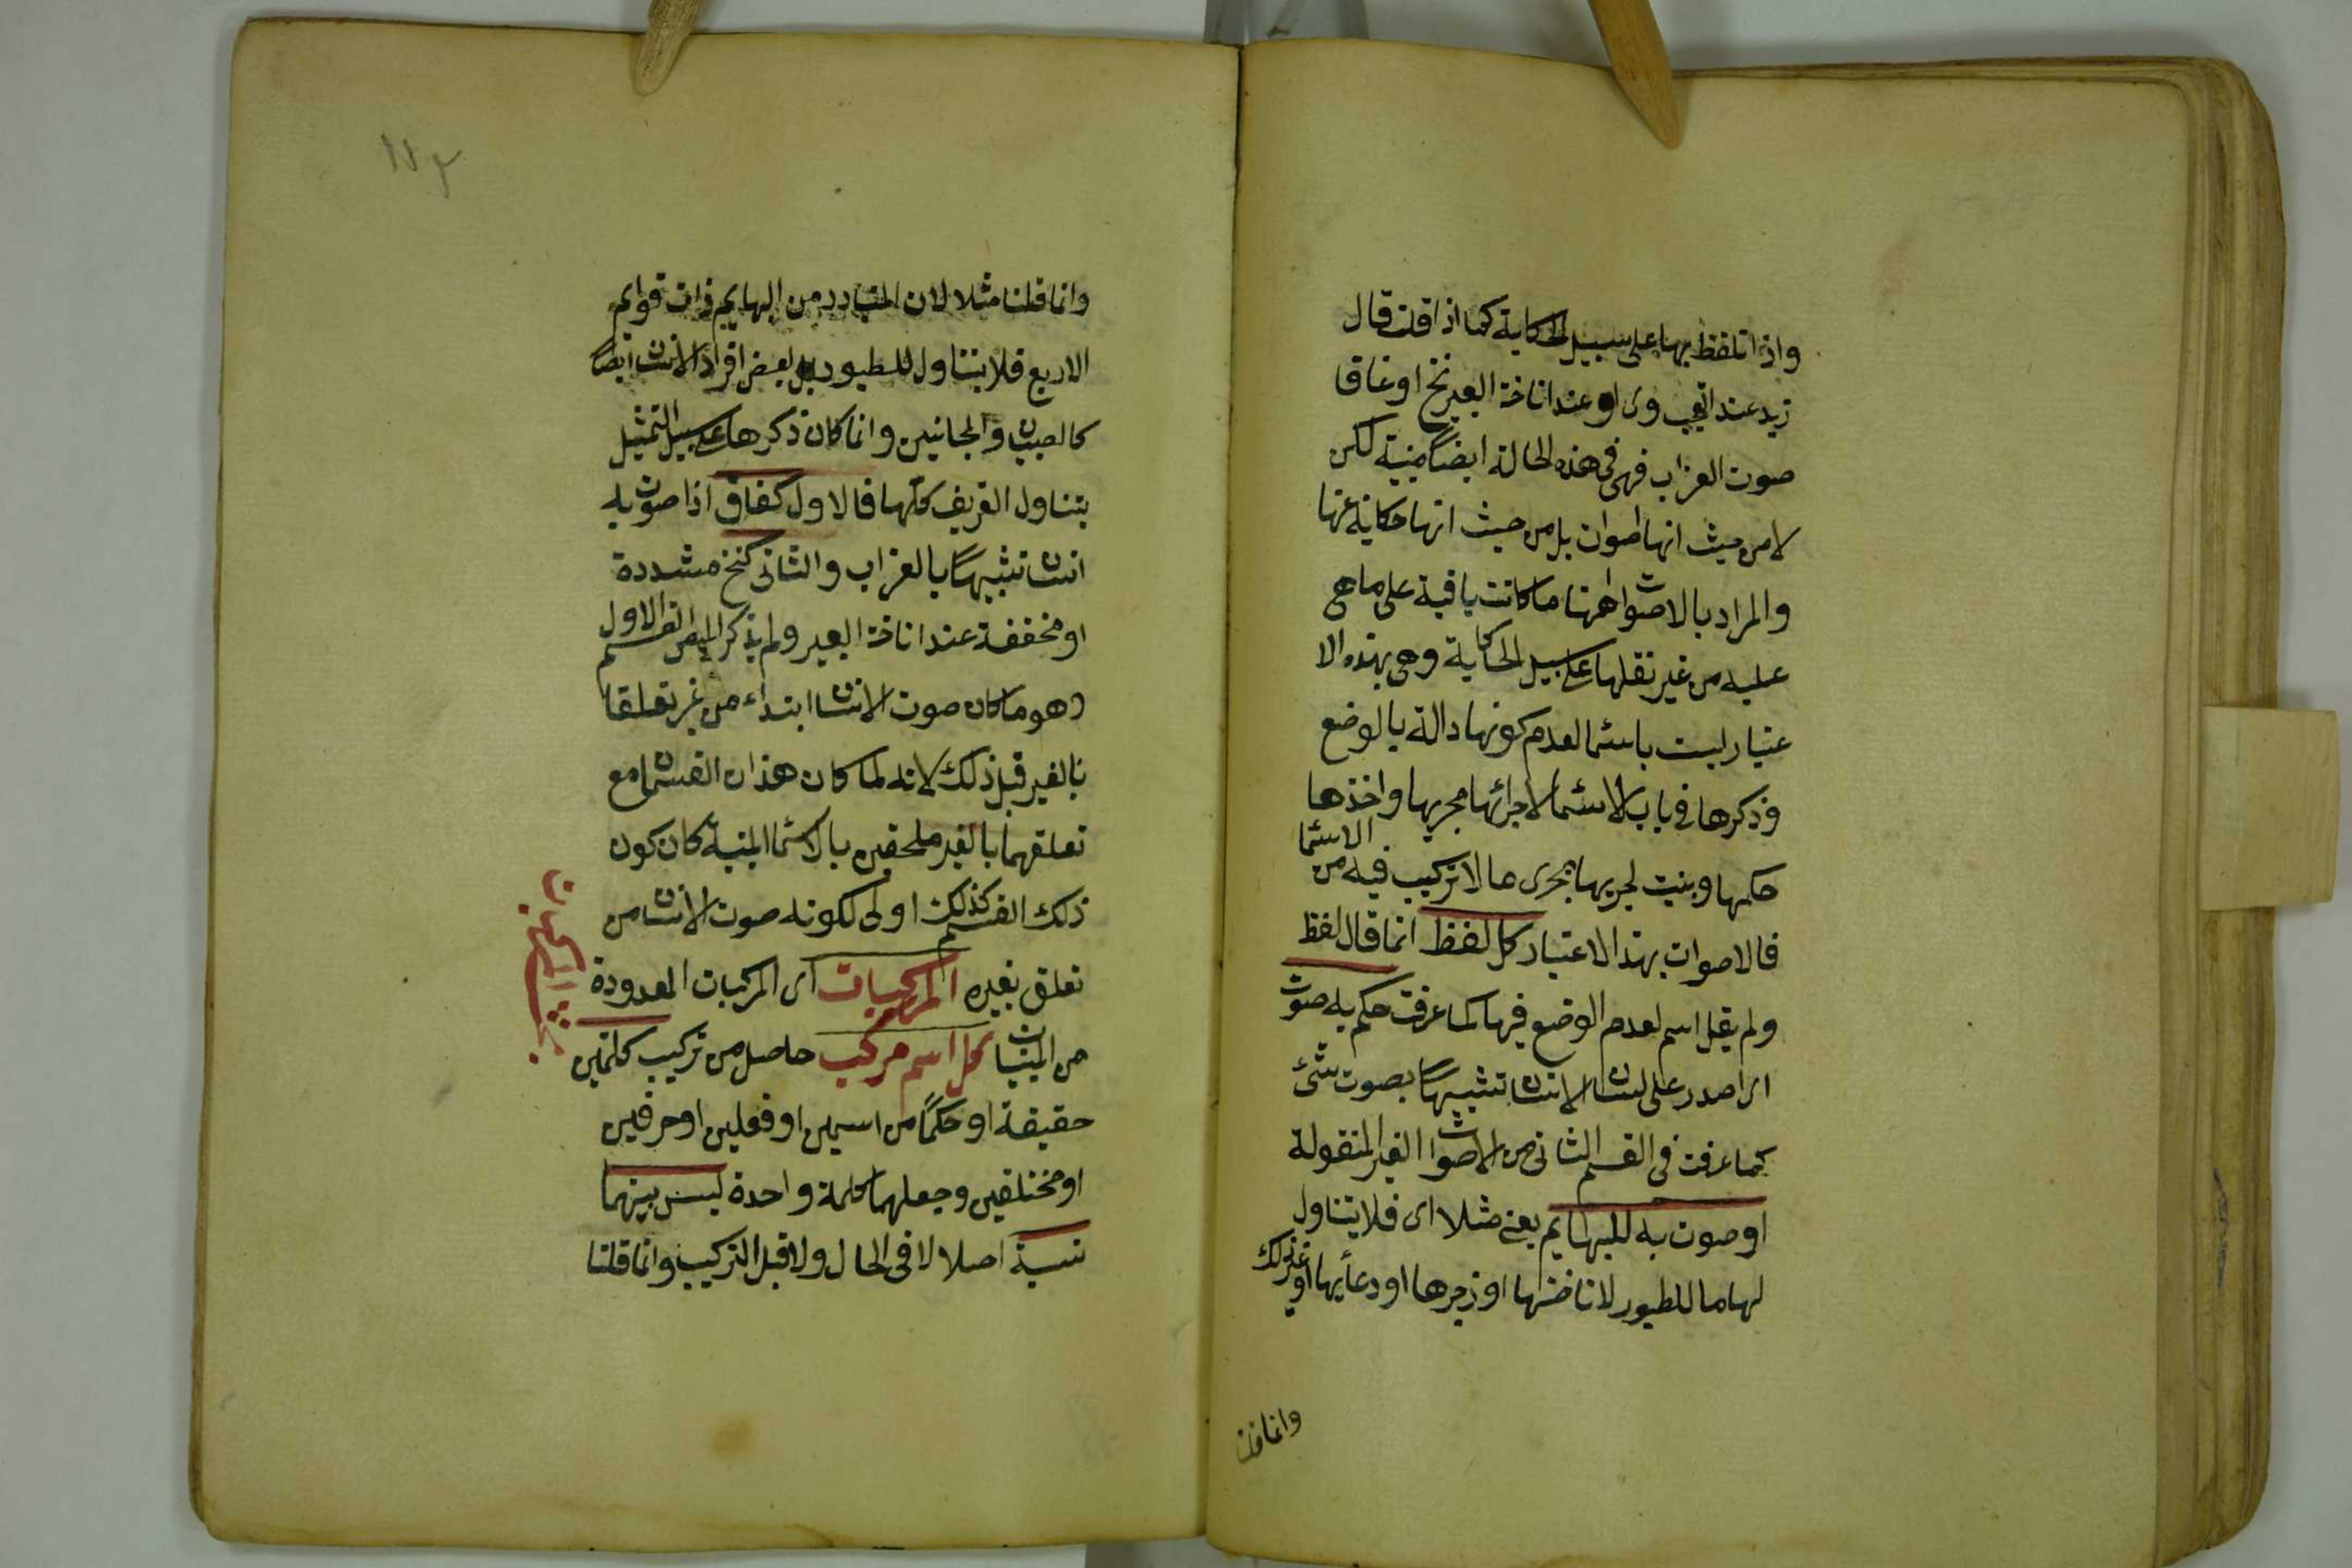 واذا تلفظ بها على سبيل الحكاية كما اذا قلت قال
زيد عند التعجب وى او عند اناخة البعير نخ او غاق
صوت الغراب فهى فى هذه الحالة ايضا مبنية لكن
لا من حيث انها اصوات بل من حيث انها حكاية عنها
والمراد بالاصوات ههنا ما كانت باقية على ما هى
عليه من غير نقلها على سبيل الحكاية وهى بهذه الا
عتبار ليست باسما لعدم كونها دالة بالوضع
وذكرها فى باب الاسما لاجرائها مجريها واخذها
حكمها وبنيت لجريها مجرى ما لا تركيب فيه من الاسما
فالاصوات بهذا الاعتبار كل لفظ انما قال لفظ
ولم يقل اسم لعدم الوضع فيها كما عرفت حكى به صوت
اى اصدر على لسان الانسان تشبيها بصوت شئ
كما عرفت فى القسم الثانى من الاصوات الغير المنقولة
او صوت به للبهايم يعنى مثلا اى فلا يتناول
لها ما للطيور لاناختها او زجرها او دعائها او غير ذلك
وانما قلنا
١٧٣
وانما قلنا مثلا لان المتبادر من البهايم ذات قوايم
الاربع فلا يتناول للطيور بل لبعض افراد الانسان ايضا
كالصبيان والمجانين وانما كان ذكرها على سبيل التمثيل
يتناول التعريف كلها فالاول كغاق اذا صوت به
انسان تشبيها بالغراب والثانى كنخ مشددة
او مخففة عند اناخة البعير ولم يذكر المص القسم الاول
وهو ما كان صوت الانسان ابتداء من غير تعلقا
بالغير قبل ذلك لانه لما كان هذان القسمان مع
تعلقهما بالغير ملحقين بالاسما المبنية كان كون
ذلك القسم كذلك اولى لكونه صوت الانسان من
تعلق بغيره المركبات اى المركبات المعدودة
من المبنيات كل اسم مركب حاصل من تركيب كلمتين
حقيقة او حكما من اسمين او فعلين او حرفين
او مختلفين وجعلهما كلمة واحدة ليس بينهما
نسبة اصلا لا فى الحال ولا قبل التركيب وانما قلنا